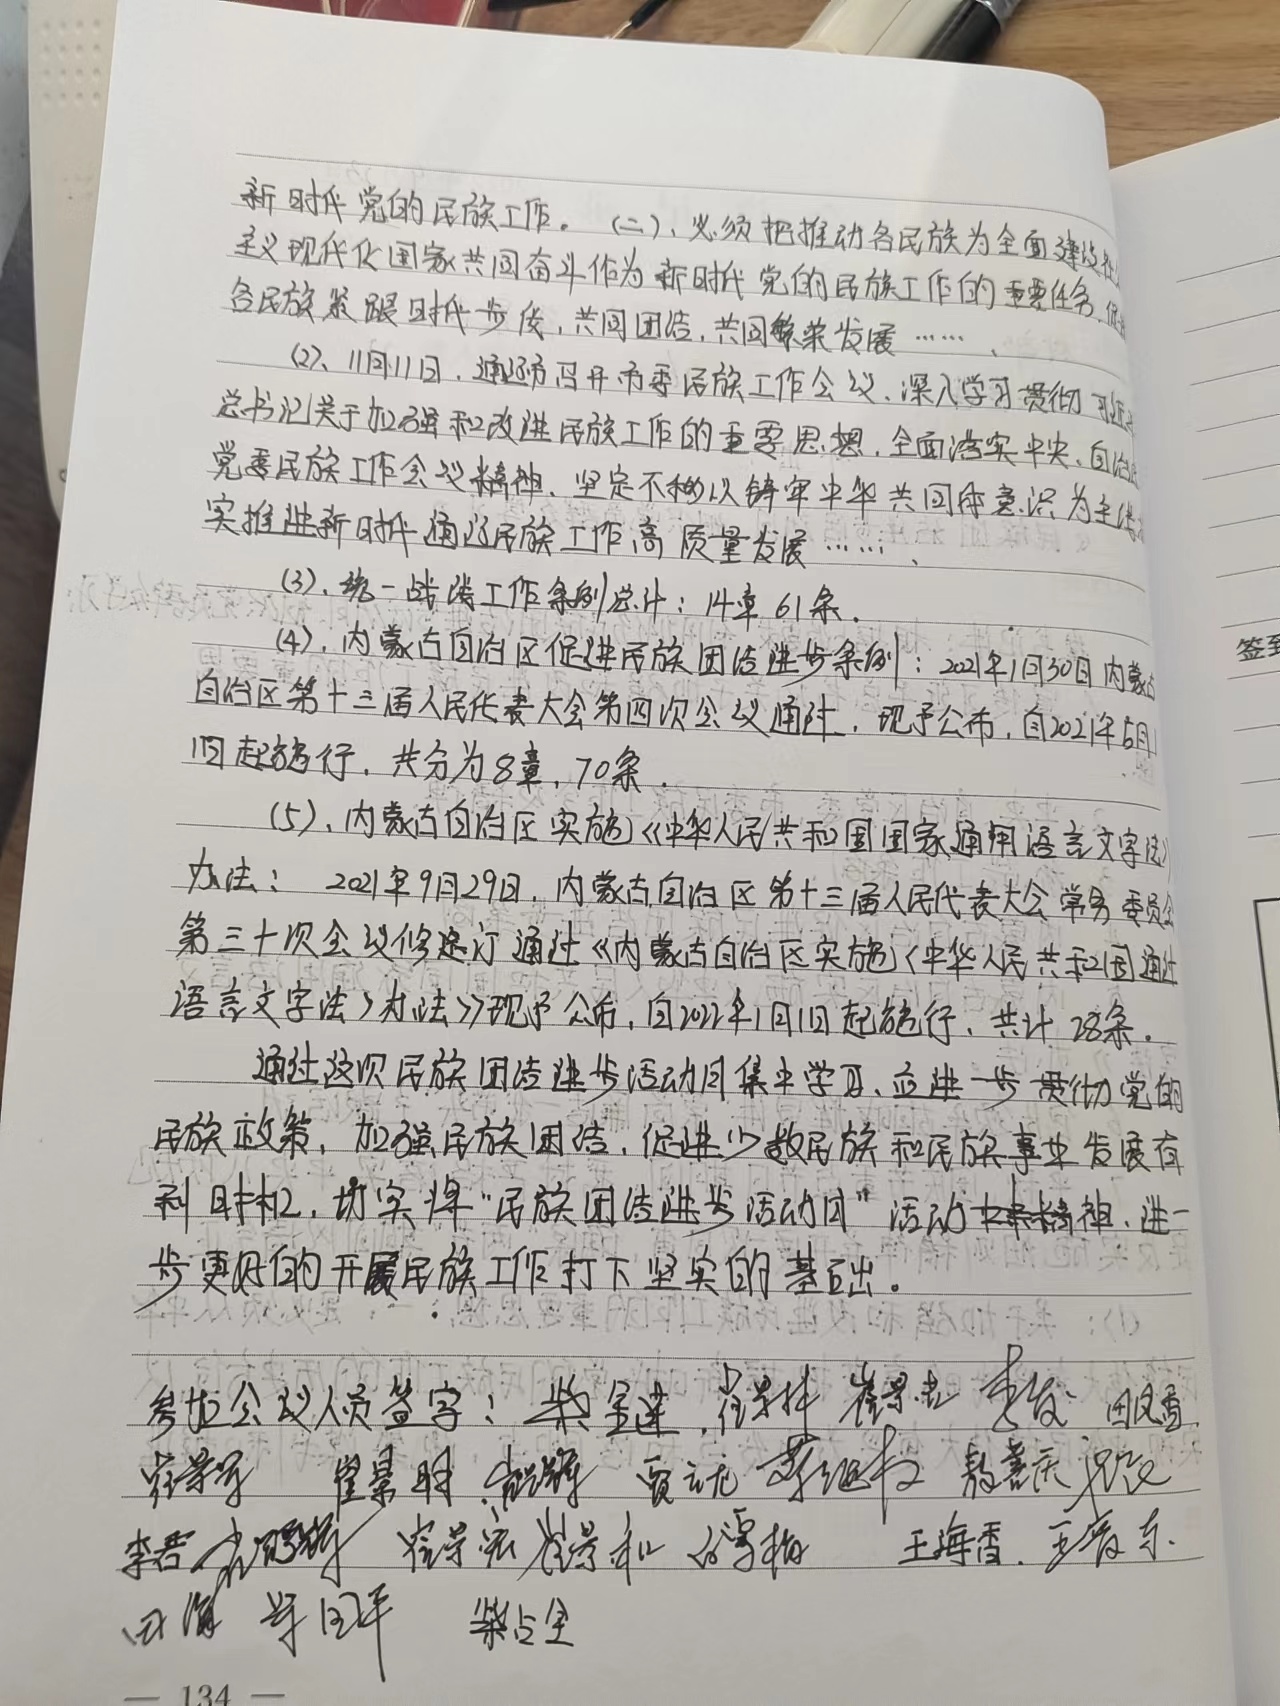 新时代党的民族工作。(二)、必须把推动各民族为全面建设社
主义现代化国家共同奋斗作为新时代党的民族工作的重要任务,促
各民族紧跟时代步伐,共同团结,共同繁荣发展……、
(2)、11月11日,通辽市召开市委民族工作会议、深入学习贯彻习近
总书记关于加强和改进民族工作的重要思想,全面落实中央、自治
党委民族工作会议精神、坚定不移以铸牢中华共同体意识为主线
实推进新时代通辽民族工作高质量发展……、
(3)、统一战线工作条例总计:14章61条.
(4)、内蒙古自治区促进民族团结进步条例:2021年1月30日内蒙古
自治区第十三届人民代表大会第四次会议通过,现予公布,自2021年5月
1日起施行,共分为8章,70条.
(5)、内蒙古自治区实施《中华人民共和国国家通用语言文字法》
办法: 2021年9月29日,内蒙古自治区第十三届人民代表大会常务委员会
第三十次会议修订通过《内蒙古自治区实施〈中华人民共和国通过
语言文字法〉办法》现予公布,自2022年1月1日起施行,共计28条.
通过这次民族团结进步活动月集中学习、应进一步贯彻党的
民族政策,加强民族团结,促进少数民族和民族事业发展有
利时机,切实将“民族团结进步活动月”活动精神,进一
步更好的开展民族工作打下坚实的基础。
参加会议人员签字:柴金莲 崔景林 崔景志 李俊 田凤香
崔景军 崔景明 贾云龙 敖喜庆
李君 崔景宏 崔景和 王海香. 王春东.
田海 柴占全
— 134 —
签到